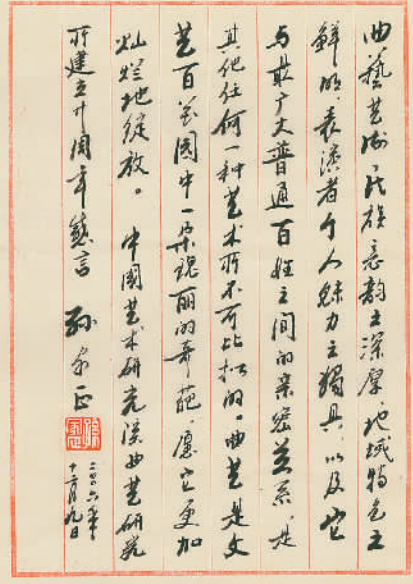 曲藝艺术,民族意韵之深厚,地域特色之
鲜明,表演者个人魅力之獨具,以及它
与最广大普通百姓之间的亲密关系,是
其他任何一种艺术所不可比拟的。曲艺是文
艺百花園中一朵瑰丽的奇葩,愿它更加
灿烂地绽放。 中國艺术研究院曲艺研究
所建立廿周年感言 孙家正
二〇〇六年
十二月九日